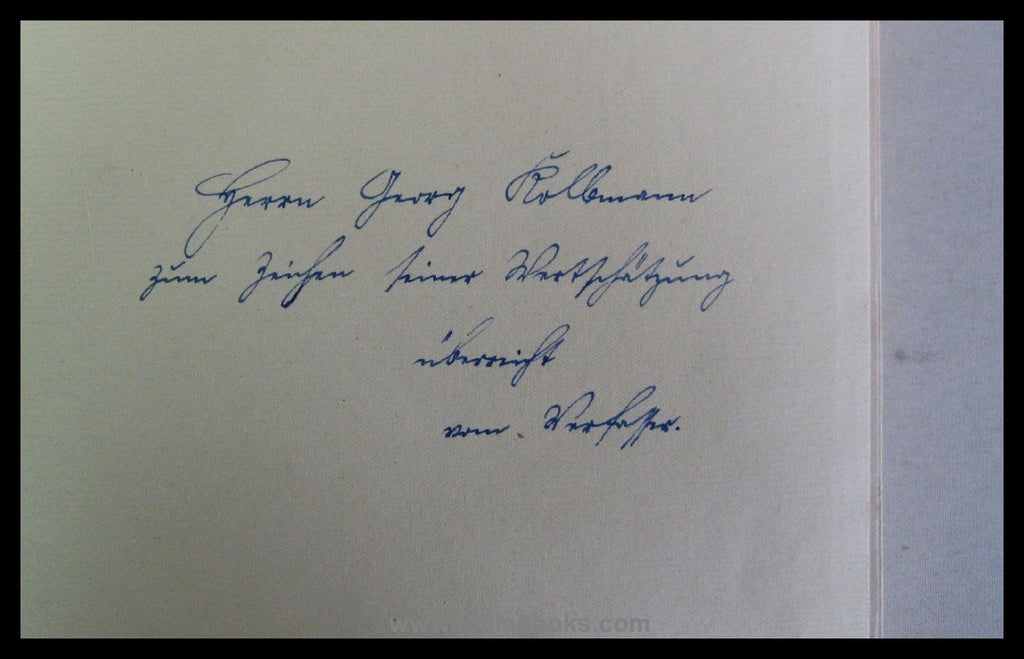 Herrn Georg Kolbmann
zum Zeichen seiner Wertschätzung
überreicht
vom Verfasser.